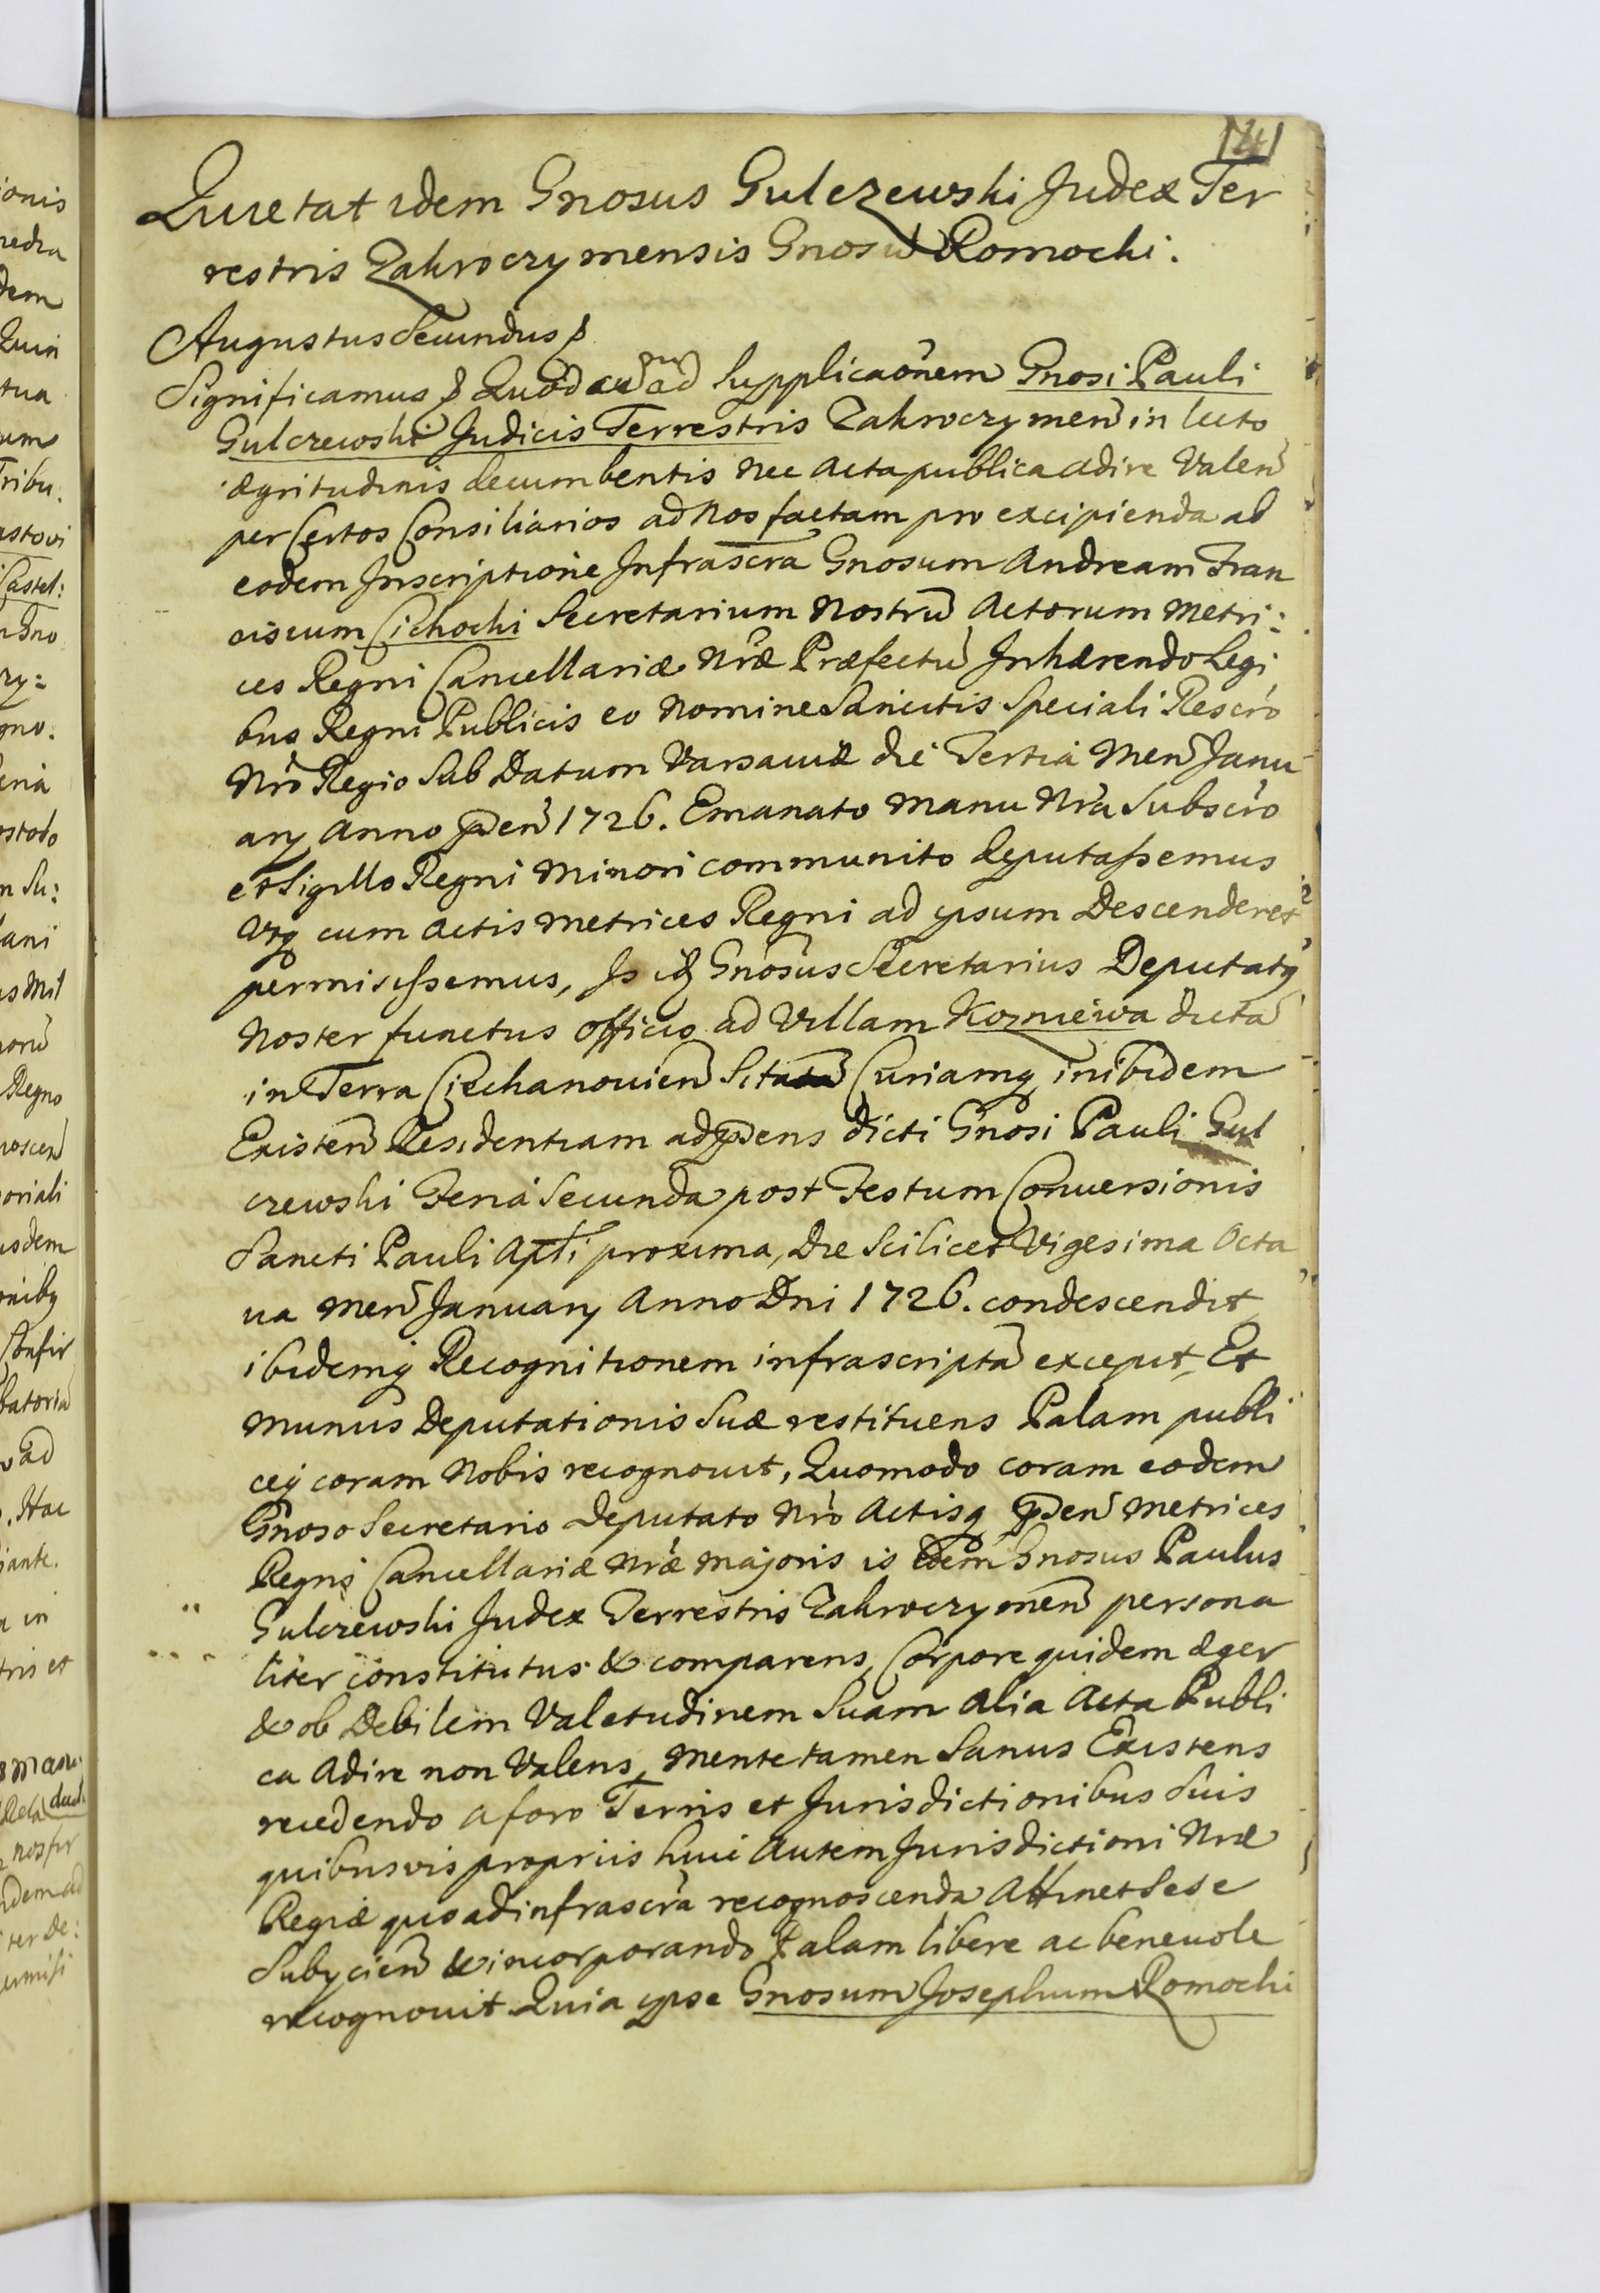 141
Quietat idem Gnosus Gulczewski Judex Ter
restris Zakroczymensis Gnosū Romocki.
Augustus Secundus
Significamus Quod cum ad Supplicaōnem Gnosi Pauli
Gulczewski Judicis Terrestris Zakroczymen̄ in lecto
ægritudinis decumbentis nec Acta publica adire Valen̄
per Certos Consiliarios ad Nos factam pro excipienda ab
eodem Inscriptione Infrascra Gnosum Andream Fran
ciscum Cichocki Secretarium Nostrū Actorum Metri:
ces Regni Cancellariæ Nræ Præfectū Inhærendo Legi
bus Regni Publicis eo Nomine Sancitis Speciali Rescro
Nro Regio Sub Datum Varsaviæ die Tertia Men̄ Janu
ary Anno pden̄ 1726. Emanato Manu Nra Subscro
et Sigillo Regni Minori communito deputassemus
Utq cum Actis Metrices Regni ad ipsum Descenderet
permisissemus, Is itq Gnosus Secretarius Deputatq
Noster functus officio ad Villam Kozniewa dictā
in Terra Ciechanovien̄ Sitā Curiamq inibidem
Existen̄ Residentiam adpdens dicti Gnosi Pauli Gul
czewski Feria Secunda post Festum Conversionis
Sancti Pauli Apli proxima, Die Scilicet Vigesima Octa
va Men̄ January Anno Dni 1726. condescendit
ibidemq Recognitionem infrascriptā excepit, Et
munus Deputationis Suæ restituens Palam publi
ceq coram Nobis recognovit, Quomodo coram eodem
Gnoso Secretario Deputato Nro Actisq pden̄ Metrices
Regni Cancellariæ Nræ Majoris is idem Gnosus Paulus
Gulczewski Judex Terrestris Zakroczymen̄ persona
liter constitutus & comparens, Corpore quidem æger
& ob Debilem Valetudinem Suam Alia Acta Publi
ca Adire non Valens, Mente tamen Sanus Existens
recedendo a foro Terris et Jurisdictionibus Suis
quibusvis propriis huic Autem Jurisdictioni Nræ
Regiæ quo ad infrascra recognoscenda Attinet Sese
Subycien̄ & incorporando Palam libere ac benevole
recognovit Quia ipse Gnosum Josephum Romocki